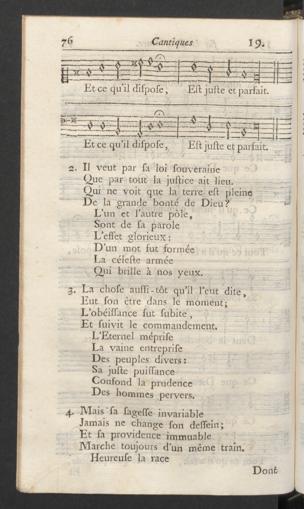 76 Cantiques 19.
Et ce qu'il dispose, Est juste et parfait.
Et ce qu'il dispose, Est juste et parfait.
2. Il veut par sa loi souveraine
Que par tout la justice ait lieu.
Qui ne voit que la terre est pleine
De la grande bonté de Dieu?
L'un et l'autre pôle,
Sont de sa parole
L'effet glorieux;
D'un mot fut formée
La céleste armée
Qui brille à nos yeux.
3. La chose aussi-tôt qu'il l'eut dite,
Eut son être dans le moment;
L'obéissance fut subite,
Et suivit le commandement.
L'Eternel méprise
La vaine entreprise
Des peuples divers:
Sa juste puissance
Confond la prudence
Des hommes pervers.
4. Mais sa sagesse invariable
Jamais ne change son dessein;
Et sa providence immuable
Marche toujours d'un même train.
Heureuse la race
Dont